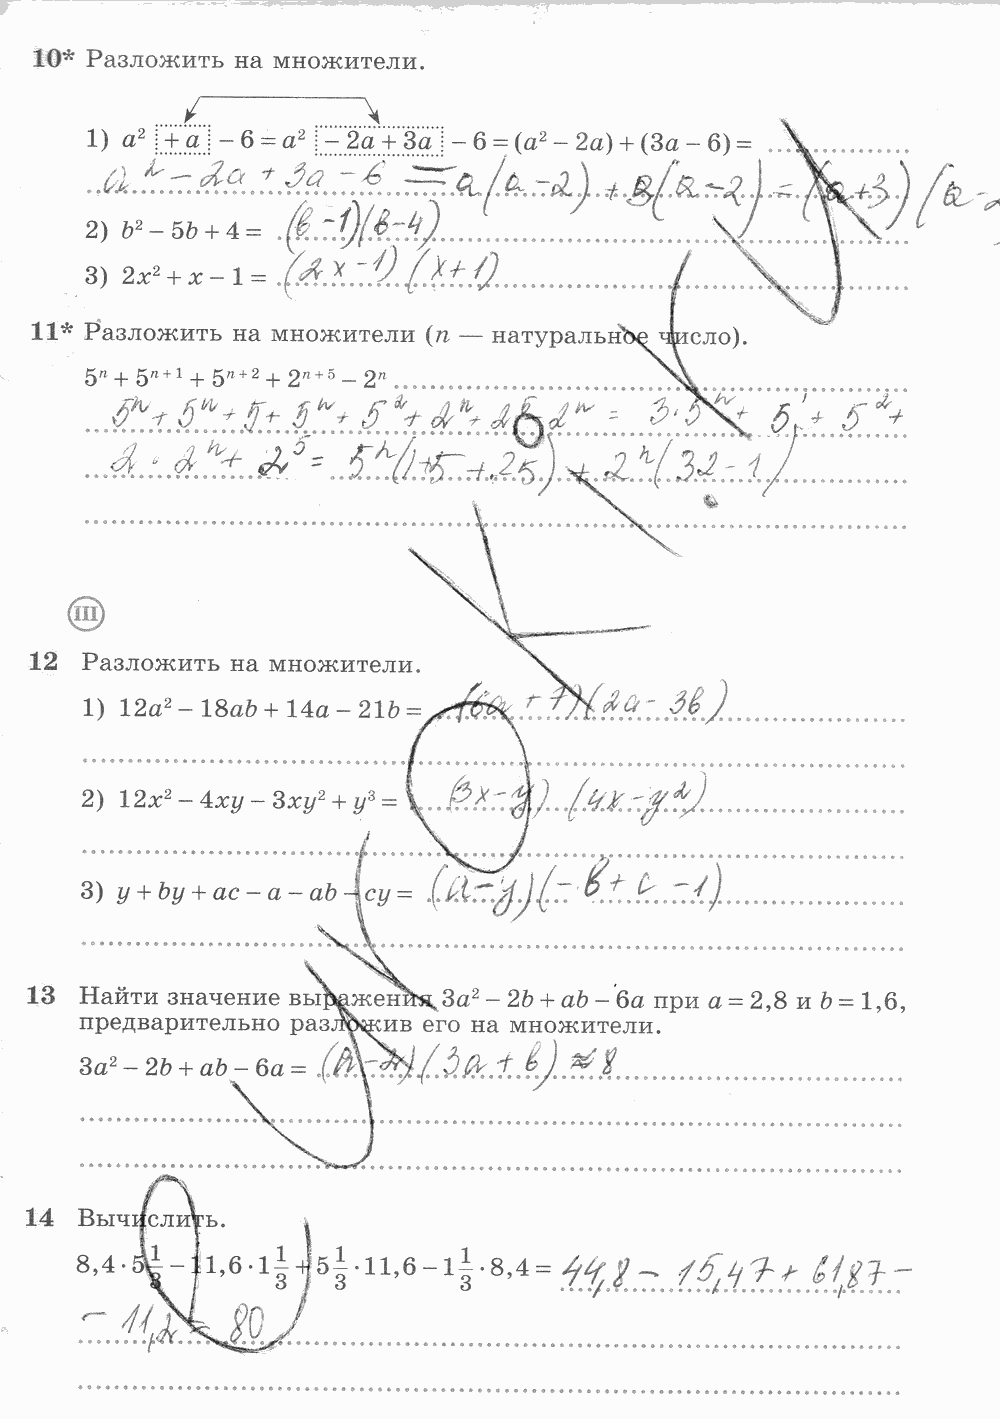 10* Разложить на множители.
1) a² + a − 6 = a² − 2a + 3a − 6 = (a² − 2a) + (3a − 6) =
a² − 2a + 3a − 6 = a(a−2) + 3(a−2) = (a+3)(a−2
2) b² − 5b + 4 = (b−1)(b−4)
3) 2x² + x − 1 = (2x−1)(x+1)
11* Разложить на множители (n — натуральное число).
5ⁿ + 5ⁿ⁺¹ + 5ⁿ⁺² + 2ⁿ⁺⁵ − 2ⁿ
5ⁿ + 5ⁿ + 5 + 5ⁿ + 5² + 2ⁿ + 2⁵ 2ⁿ = 3·5ⁿ + 5¹ + 5² +
2 · 2ⁿ + 2⁵ = 5ⁿ(1+5+25) + 2ⁿ(32−1)
III
12 Разложить на множители.
1) 12a² − 18ab + 14a − 21b = (6a + 7)(2a − 3b)
2) 12x² − 4xy − 3xy² + y³ = (3x−y) (4x−y²)
3) y + by + ac − a − ab − cy = (a−y)(−b+c−1)
13 Найти значение выражения 3a² − 2b + ab − 6a при a = 2,8 и b = 1,6,
предварительно разложив его на множители.
3a² − 2b + ab − 6a = (a−2)(3a+b) ≈ 8
14 Вычислить.
8,4 · 5 1/3 − 11,6 · 1 1/3 + 5 1/3 · 11,6 − 1 1/3 · 8,4 = 44,8 − 15,47 + 61,87 −
− 11,2 = 80